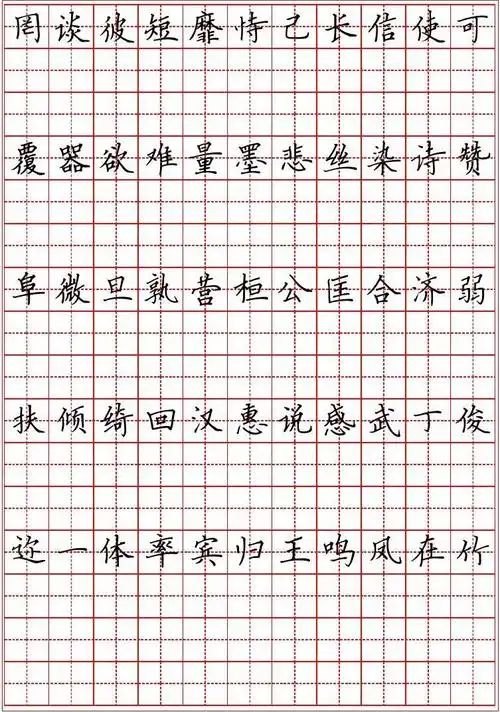 罔谈彼短靡恃己长信使可
覆器欲难量墨悲丝染诗赞
阜微旦孰营桓公匡合济弱
扶倾绮回汉惠说感武丁俊
迩一体率宾归王鸣凤在竹